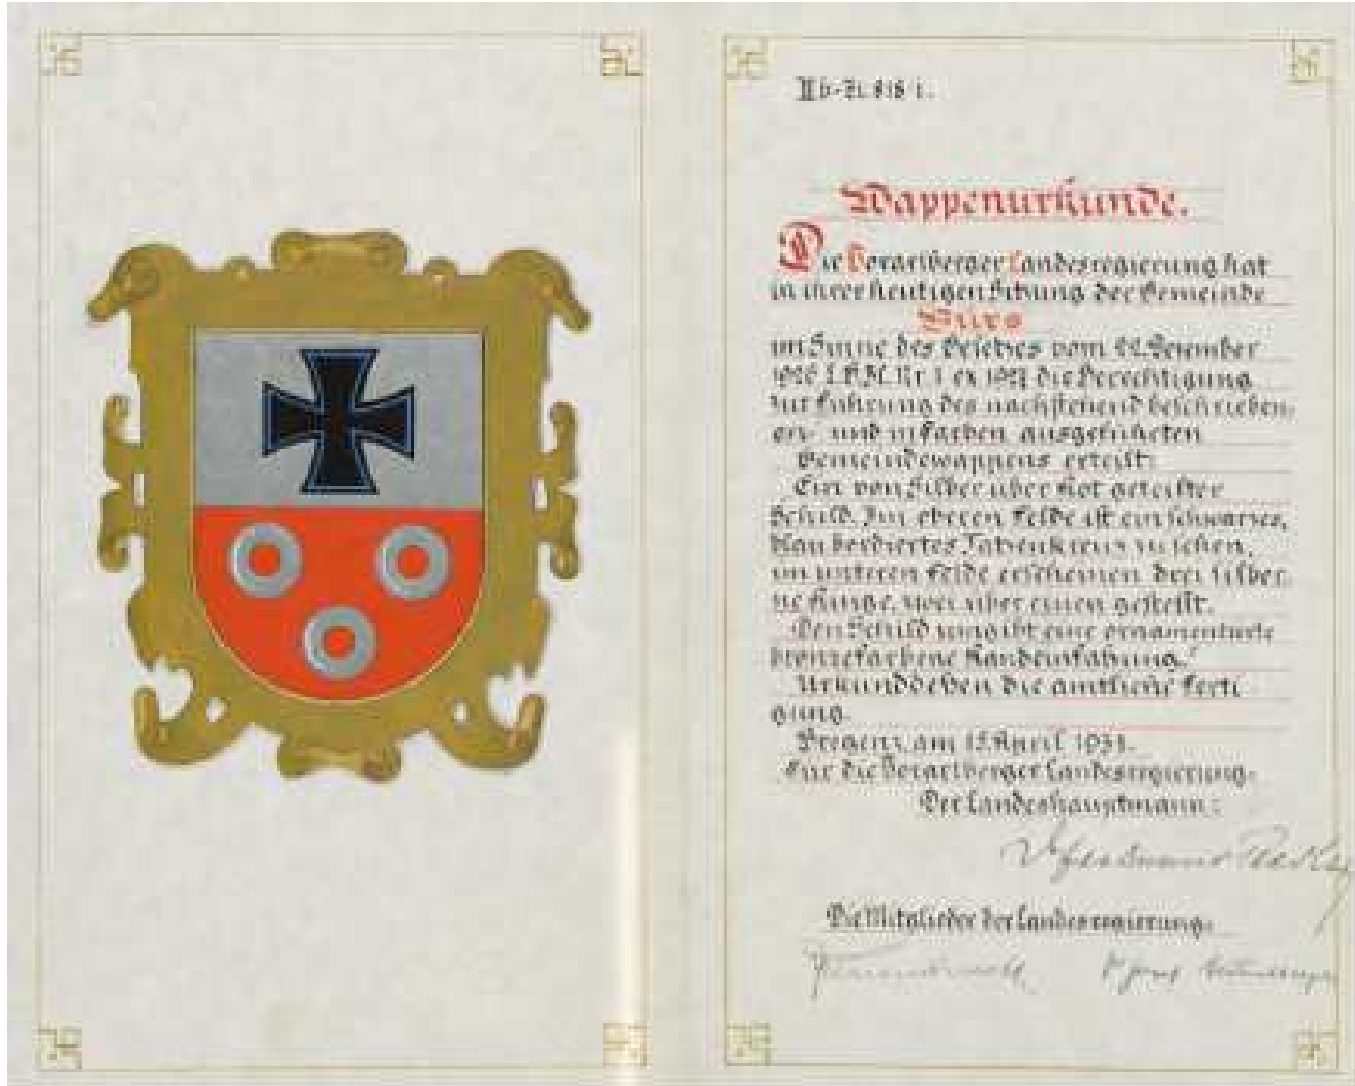 IIb-Zl. 818/1.
Wappenurkunde.
Die Vorarlberger Landesregierung hat
in ihrer heutigen Sitzung der Gemeinde
Bürs
im Sinne des Gesetzes vom 22. Dezember
1926 L.G.Bl. Nr. 1 ex 1927 die Berechtigung
zur Führung des nachstehend beschrieben-
en und in Farben ausgeführten
Gemeindewappens erteilt:
Ein von Silber über Rot geteilter
Schild. Im oberen Felde ist ein schwarzes,
blau bordiertes Tatzenkreuz zu sehen,
im unteren Felde erscheinen drei silber-
ne Ringe, zwei über einen gestellt.
Den Schild umgibt eine ornamentierte
bronzefarbene Randeinfassung.
Urkund dessen die amtliche Ferti
gung.
Bregenz, am 15. April 193
Für die Vorarlberger Landesregierung:
Der Landeshauptmann:
Die Mitglieder der Landesregierung: